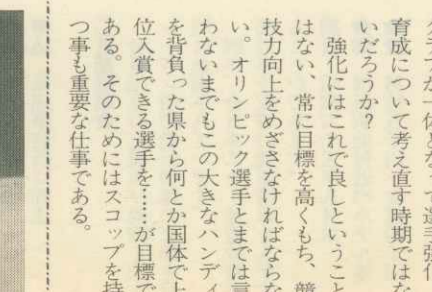 クラブが一体となって選手強化
育成について考え直す時期ではな
いだろうか？
強化にはこれで良しということ
はない、常に目標を高くもち、競
技力向上をめざさなければならな
い。オリンピック選手とまでは言
わないまでもこの大きなハンディ
を背負った県から何とか国体で上
位入賞できる選手を……が目標で
ある。そのためにはスコップを持
つ事も重要な仕事である。